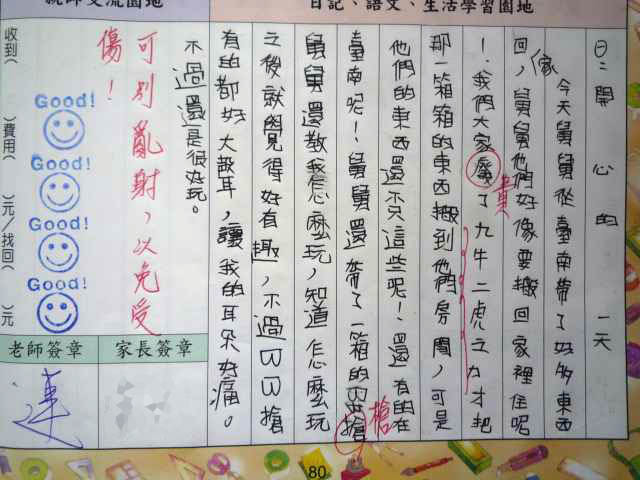 日記、語文、生活學習園地
日:開心的一天
今天舅舅從臺南帶了好多東西
回傢,舅舅他們好像要搬回家裡住呢
!我們大家廢棄了九牛二虎之力才把
那一箱箱的東西搬到他們房間,可是
他們的東西還不只這些呢!還有的在
臺南呢!舅舅還帶了一箱的BB搶槍
舅舅還教我怎麼玩,知道怎麼玩
之後就覺得好有趣,不過BB搶
有的都好大聲耳,讓我的耳朵好痛。
不過還是很好玩。
可別亂射,以免受
傷!
Good!
Good!
Good!
Good!
收到(
)費用(
)元/找回(
)元
家長簽章
老師簽章
連
80